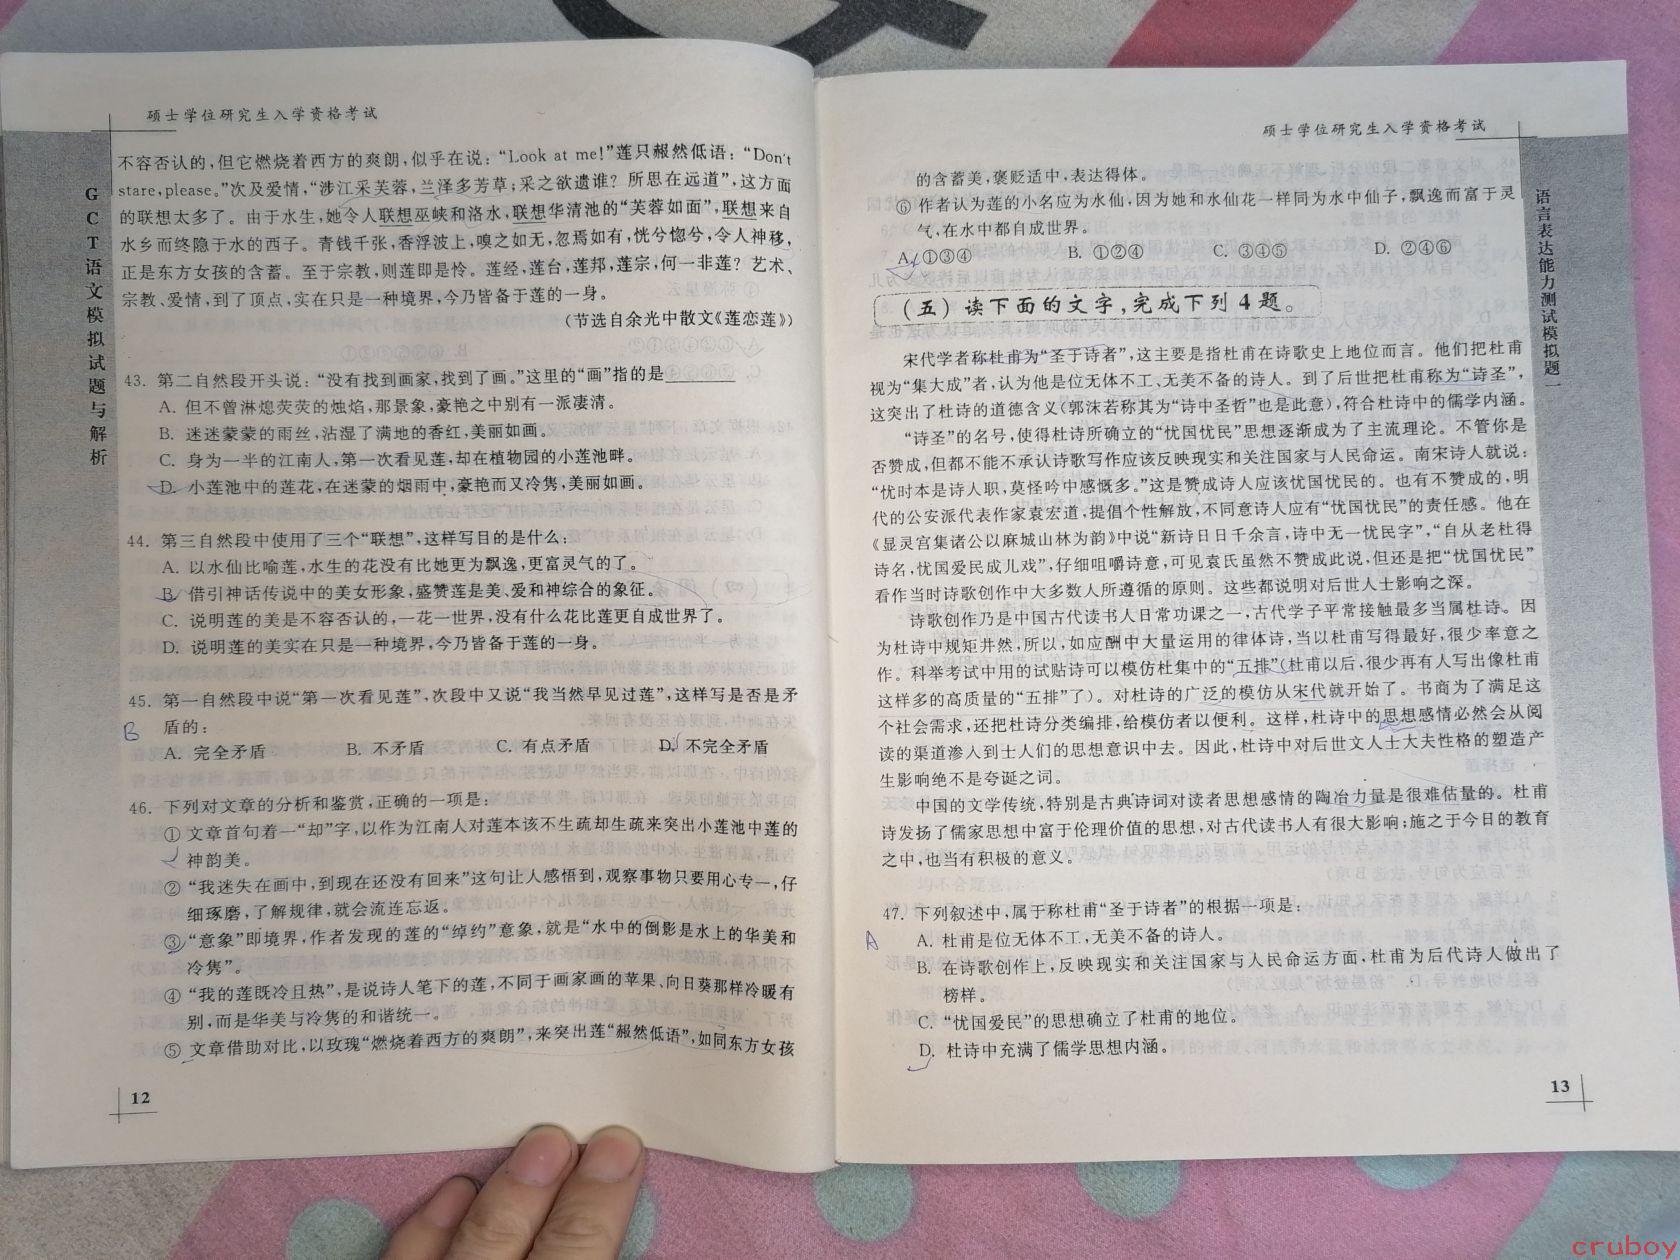 硕士学位研究生入学资格考试
GCT语文模拟试题与解析
不容否认的,但它燃烧着西方的爽朗,似乎在说:“Look at me!”莲只赧然低语:“Don't
stare,please.”次及爱情,“涉江采芙蓉,兰泽多芳草;采之欲遗谁?所思在远道”,这方面
的联想太多了。由于水生,她令人联想巫峡和洛水,联想华清池的“芙蓉如面”,联想来自
水乡而终隐于水的西子。青钱千张,香浮波上,嗅之如无,忽焉如有,恍兮惚兮,令人神移,
正是东方女孩的含蓄。至于宗教,则莲即是怜。莲经,莲台,莲邦,莲宗,何一非莲?艺术、
宗教、爱情,到了顶点,实在只是一种境界,今乃皆备于莲的一身。
(节选自余光中散文《莲恋莲》)
43. 第二自然段开头说:“没有找到画家,找到了画。”这里的“画”指的是
A. 但不曾淋熄荧荧的烛焰,那景象,豪艳之中别有一派凄清。
B. 迷迷蒙蒙的雨丝,沾湿了满地的香红,美丽如画。
C. 身为一半的江南人,第一次看见莲,却在植物园的小莲池畔。
D. 小莲池中的莲花,在迷蒙的烟雨中,豪艳而又冷隽,美丽如画。
44. 第三自然段中使用了三个“联想”,这样写目的是什么:
A. 以水仙比喻莲,水生的花没有比她更为飘逸,更富灵气的了。
B. 借引神话传说中的美女形象,盛赞莲是美、爱和神综合的象征。
C. 说明莲的美是不容否认的,一花一世界,没有什么花比莲更自成世界了。
D. 说明莲的美实在只是一种境界,今乃皆备于莲的一身。
45. 第一自然段中说“第一次看见莲”,次段中又说“我当然早见过莲”,这样写是否是矛
盾的:
B
A. 完全矛盾 B. 不矛盾 C. 有点矛盾 D. 不完全矛盾
46. 下列对文章的分析和鉴赏,正确的一项是:
① 文章首句着一“却”字,以作为江南人对莲本该不生疏却生疏来突出小莲池中莲的
神韵美。
② “我迷失在画中,到现在还没有回来”这句让人感悟到,观察事物只要用心专一,仔
细琢磨,了解规律,就会流连忘返。
③ “意象”即境界,作者发现的莲的“绰约”意象,就是“水中的倒影是水上的华美和
冷隽”。
④ “我的莲既冷且热”,是说诗人笔下的莲,不同于画家画的苹果、向日葵那样冷暖有
别,而是华美与冷隽的和谐统一。
⑤ 文章借助对比,以玫瑰“燃烧着西方的爽朗”,来突出莲“赧然低语”,如同东方女孩
12
硕士学位研究生入学资格考试
语言表达能力测试模拟题一
的含蓄美,褒贬适中,表达得体。
⑥ 作者认为莲的小名应为水仙,因为她和水仙花一样同为水中仙子,飘逸而富于灵
气,在水中都自成世界。
A. ①③④ B. ①②④ C. ③④⑤ D. ②④⑥
(五) 读下面的文字,完成下列4题。
宋代学者称杜甫为“圣于诗者”,这主要是指杜甫在诗歌史上地位而言。他们把杜甫
视为“集大成”者,认为他是位无体不工、无美不备的诗人。到了后世把杜甫称为“诗圣”,
这突出了杜诗的道德含义(郭沫若称其为“诗中圣哲”也是此意),符合杜诗中的儒学内涵。
“诗圣”的名号,使得杜诗所确立的“忧国忧民”思想逐渐成为了主流理论。不管你是
否赞成,但都不能不承认诗歌写作应该反映现实和关注国家与人民命运。南宋诗人就说:
“忧时本是诗人职,莫怪吟中感慨多。”这是赞成诗人应该忧国忧民的。也有不赞成的,明
代的公安派代表作家袁宏道,提倡个性解放,不同意诗人应有“忧国忧民”的责任感。他在
《显灵宫集诸公以麻城山林为韵》中说“新诗日日千余言,诗中无一忧民字”,“自从老杜得
诗名,忧国爱民成儿戏”,仔细咀嚼诗意,可见袁氏虽然不赞成此说,但还是把“忧国忧民”
看作当时诗歌创作中大多数人所遵循的原则。这些都说明对后世人士影响之深。
诗歌创作乃是中国古代读书人日常功课之一,古代学子平常接触最多当属杜诗。因
为杜诗中规矩井然,所以,如应酬中大量运用的律体诗,当以杜甫写得最好,很少率意之
作。科举考试中用的试贴诗可以模仿杜集中的“五排”(杜甫以后,很少再有人写出像杜甫
这样多的高质量的“五排”了)。对杜诗的广泛的模仿从宋代就开始了。书商为了满足这
个社会需求,还把杜诗分类编排,给模仿者以便利。这样,杜诗中的思想感情必然会从阅
读的渠道渗入到士人们的思想意识中去。因此,杜诗中对后世文人士大夫性格的塑造产
生影响绝不是夸诞之词。
中国的文学传统,特别是古典诗词对读者思想感情的陶冶力量是很难估量的。杜甫
诗发扬了儒家思想中富于伦理价值的思想,对古代读书人有很大影响;施之于今日的教育
之中,也当有积极的意义。
47. 下列叙述中,属于称杜甫“圣于诗者”的根据一项是:
A
A. 杜甫是位无体不工,无美不备的诗人。
B. 在诗歌创作上,反映现实和关注国家与人民命运方面,杜甫为后代诗人做出了
榜样。
C. “忧国爱民”的思想确立了杜甫的地位。
D. 杜诗中充满了儒学思想内涵。
13
cruboy